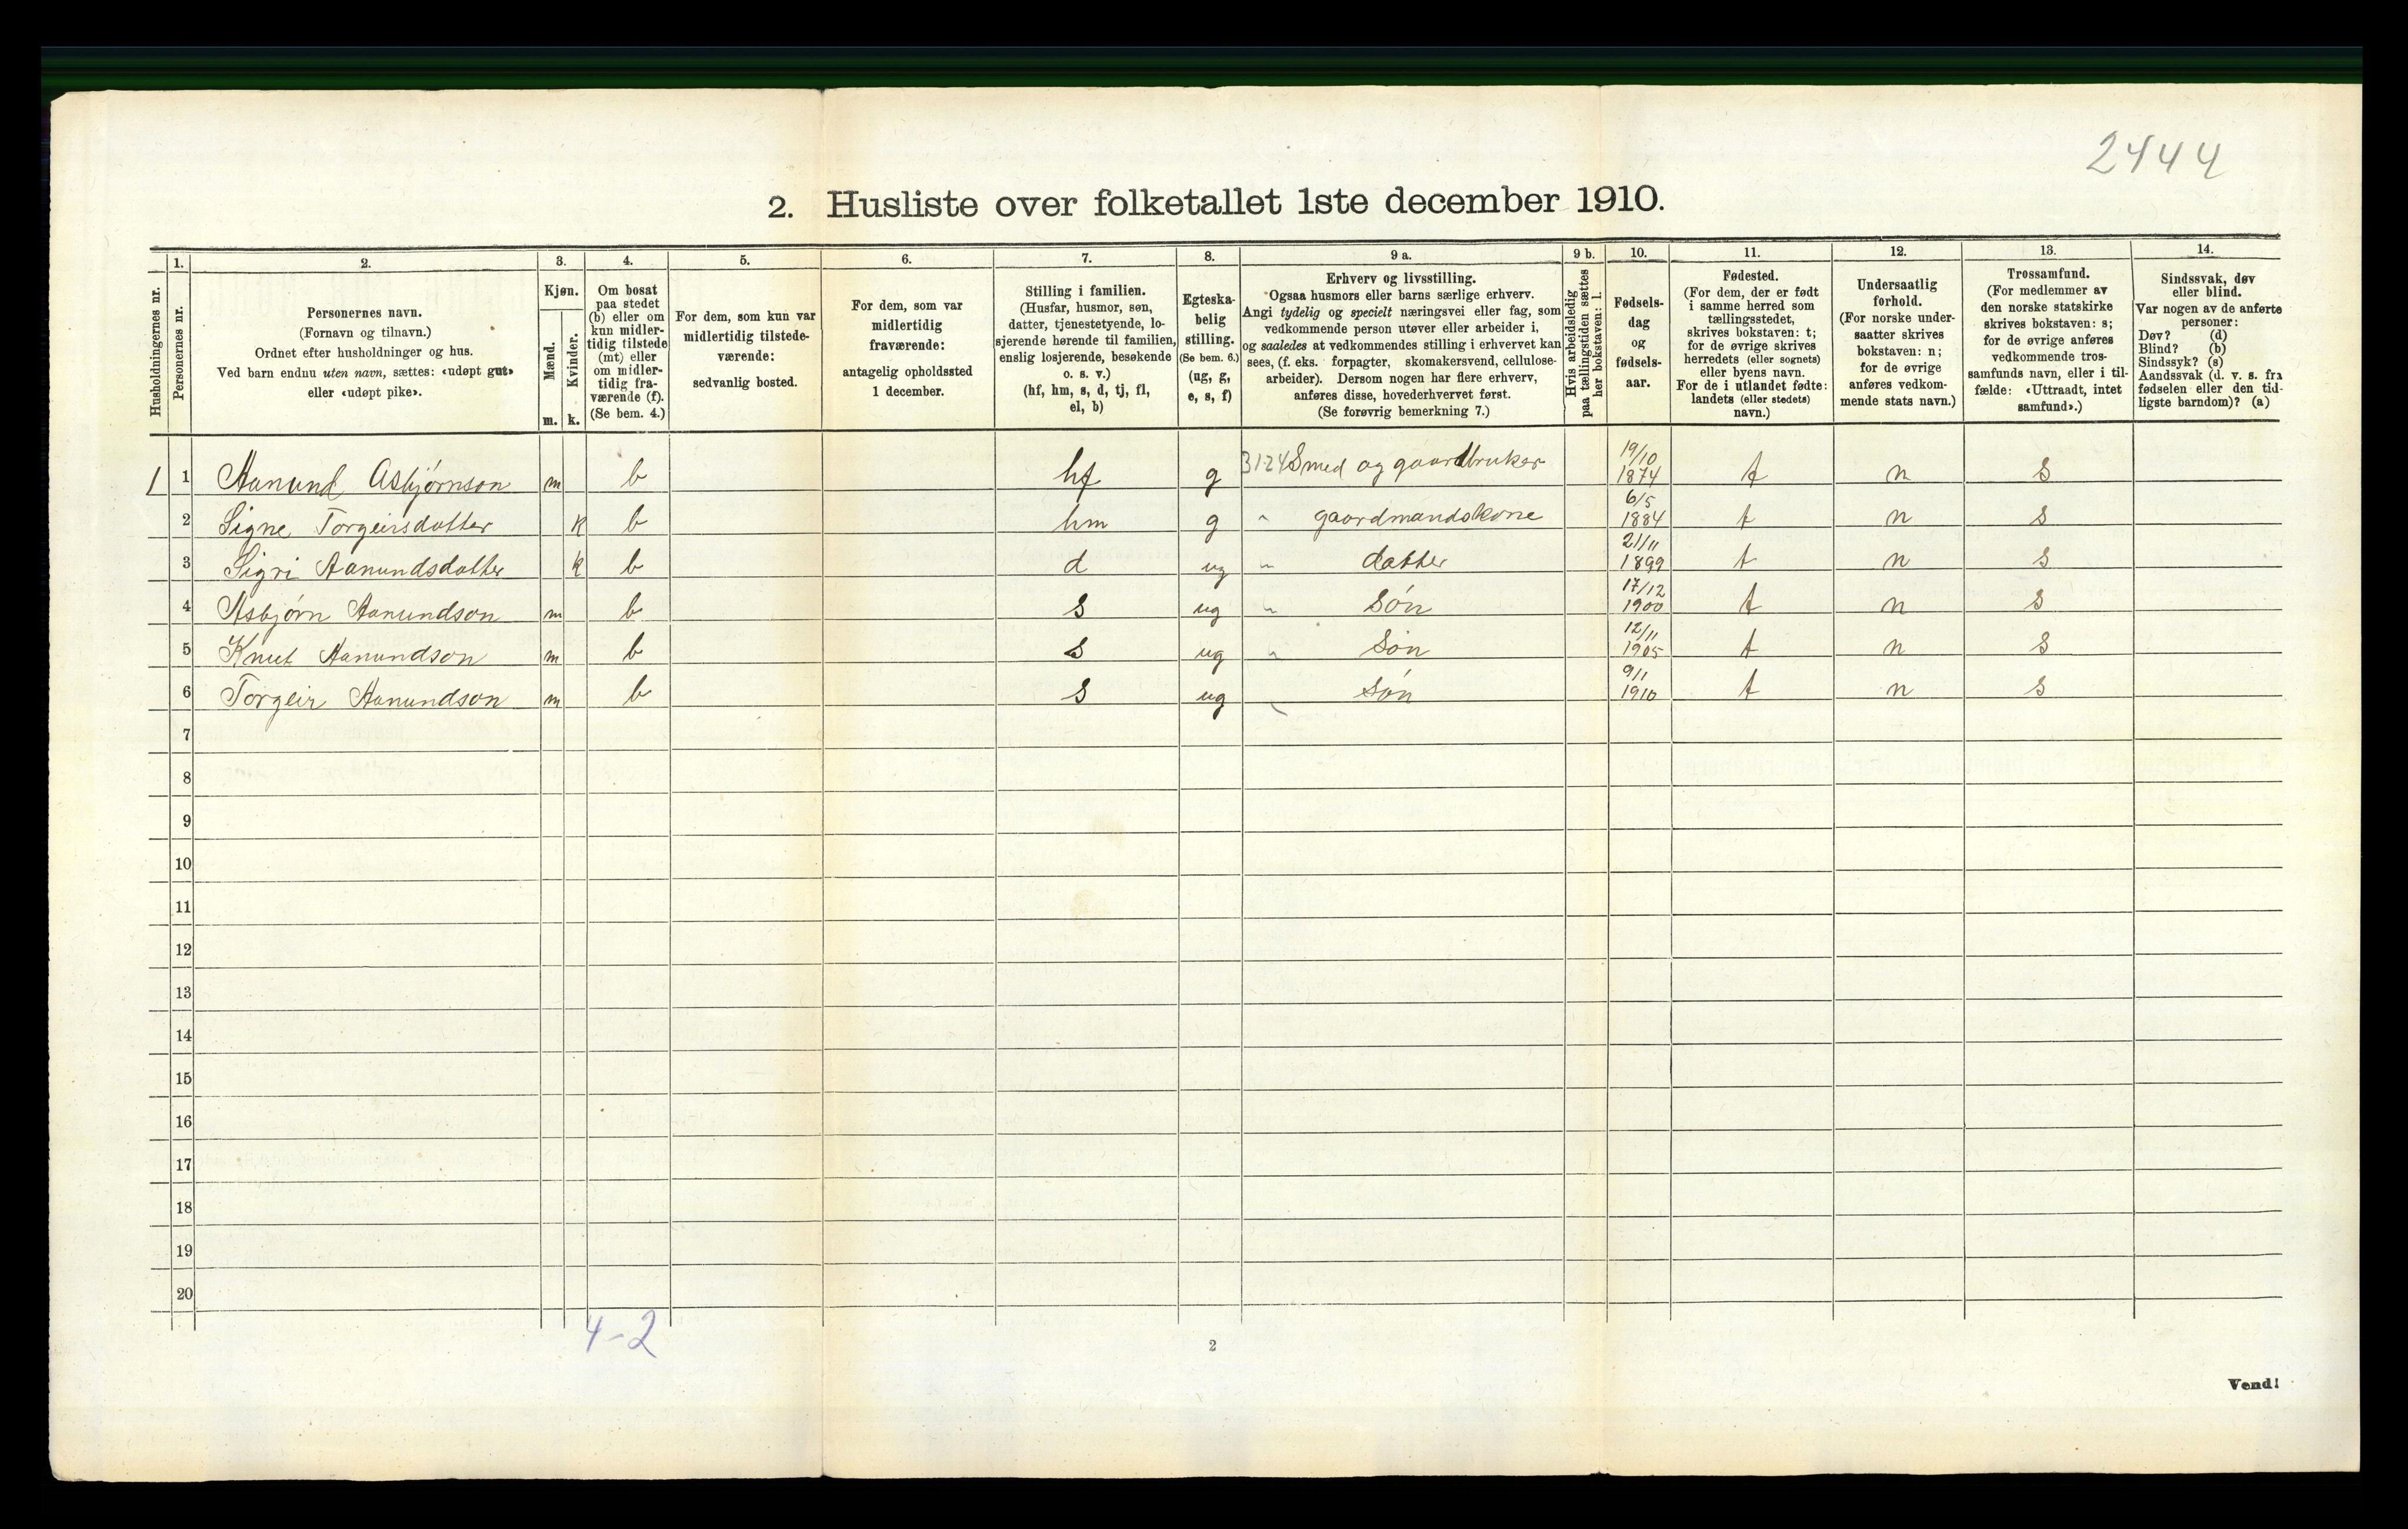 2444
2. Husliste over folketallet 1ste december 1910.
Husholdningernes nr.
1.
Personernes nr.
2.
Personernes navn.
(Fornavn og tilnavn.)
Ordnet efter husholdninger og hus.
Ved barn endnu uten navn, sættes: «udøpt gut»
eller «udøpt pike».
3.
Kjøn.
Mænd.
Kvinder.
m. k.
4.
Om bosat
paa stedet
(b) eller om
kun midler-
tidig tilstede
(mt) eller
om midler-
tidig fra-
værende (f).
(Se bem. 4.)
5.
For dem, som kun var
midlertidig tilstede-
værende:
sedvanlig bosted.
6.
For dem, som var
midlertidig
fraværende:
antagelig opholdssted
1 december.
7.
Stilling i familien.
(Husfar, husmor, søn,
datter, tjenestetyende, lo-
sjerende hørende til familien,
enslig losjerende, besøkende
o. s. v.)
(hf, hm, s, d, tj, fl,
el, b)
8.
Egteska-
belig
stilling.
(Se bem. 6.)
(ug, g,
e, s, f)
9 a.
Erhverv og livsstilling.
Ogsaa husmors eller barns særlige erhverv.
Angi tydelig og specielt næringsvei eller fag, som
vedkommende person utøver eller arbeider i,
og saaledes at vedkommendes stilling i erhvervet kan
sees, (f. eks. forpagter, skomakersvend, cellulose-
arbeider). Dersom nogen har flere erhverv,
anføres disse, hovederhvervet først.
(Se forøvrig bemerkning 7.)
9 b.
Hvis arbeidsledig
paa tællingstiden sættes
her bokstaven: l.
10.
Fødsels-
dag
og
fødsels-
aar.
11.
Fødested.
(For dem, der er født
i samme herred som
tællingsstedet,
skrives bokstaven: t;
for de øvrige skrives
herredets (eller sognets)
eller byens navn.
For de i utlandet fødte:
landets (eller stedets)
navn.)
12.
Undersaatlig
forhold.
(For norske under-
saatter skrives
bokstaven: n;
for de øvrige
anføres vedkom-
mende stats navn.)
13.
Trossamfund.
(For medlemmer av
den norske statskirke
skrives bokstaven: s;
for de øvrige anføres
vedkommende tros-
samfunds navn, eller i til-
fælde: «Uttraadt, intet
samfund».)
14.
Sindssvak, døv
eller blind.
Var nogen av de anførte
personer:
Døv? (d)
Blind? (b)
Sindssyk? (s)
Aandssvak (d. v. s. fra
fødselen eller den tid-
ligste barndom)? (a)
1 1 Aanund Asbjørnson m b hf g 3124 Smed og gaardbruker 19/10 1874 t n s
2 Signe Torgeirsdatter k b hm g " gaardmandskone 6/5 1884 t n s
3 Sigri Aanundsdatter k b d ug " datter 21/11 1899 t n s
4 Asbjørn Aanundson m b s ug " søn 17/12 1900 t n s
5 Knut Aanundson m b s ug " søn 12/11 1905 t n s
6 Torgeir Aanundson m b s ug " søn 9/1 1910 t n s
7
8
9
10
11
12
13
14
15
16
17
18
19
20
4-2
2
Vend!